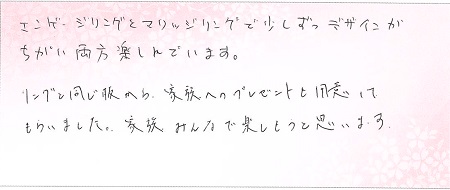 エンゲージリングとマリッジリングで少しずつデザインが
ちがい両方楽しんでいます。
リングと同じ服から、家族へのプレゼントも用意して
もらいました。家族みんなで楽しもうと思います。